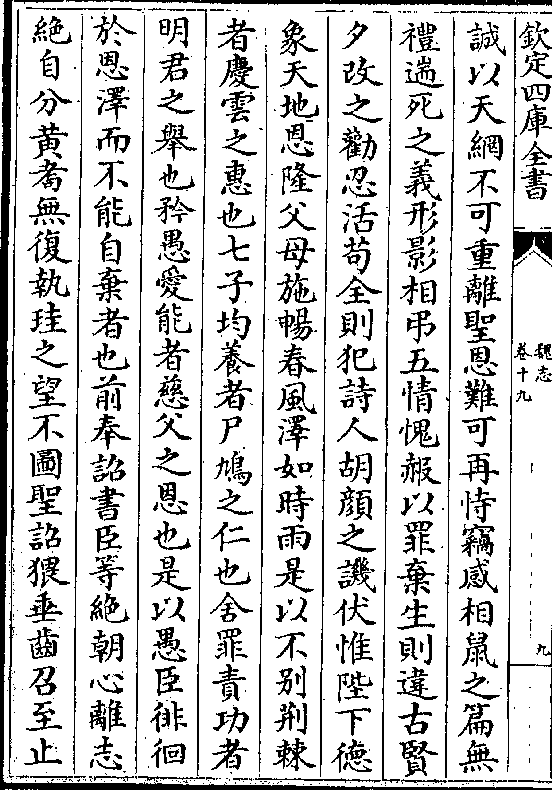 欽定四庫全書
魏志
卷十九
九
誠以天網不可重離聖恩難可再恃竊感相鼠之篇無
禮遄死之義形影相弔五情愧赧以罪棄生則違古賢
夕改之勸忍活苟全則犯詩人胡顔之譏伏惟陛下德
象天地恩隆父母施暢春風澤如時雨是以不别荆棘
者慶雲之惠也七子均養者尸鳩之仁也舍罪責功者
明君之舉也矜愚愛能者慈父之恩也是以愚臣徘徊
於恩澤而不能自棄者也前奉詔書臣等絶朝心離志
絶自分黄耉無復執珪之望不圖聖詔猥垂齒召至止